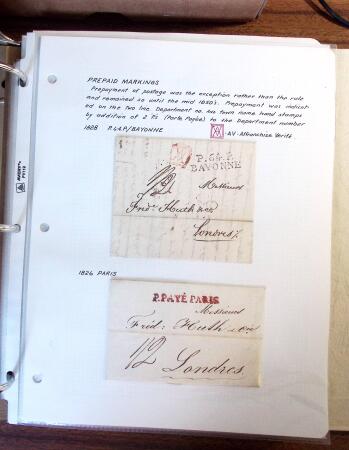 PREPAID MARKINGS
Prepayment of postage was the exception rather than the rule
and remained so until the mid 1850's. Prepayment was indicat-
ed on the two line Department no. and town name hand stamps
by addition of 2 P's (Porte Payée) to the Department number
1828 P.64.P/BAYONNE
-AV-Affranchise Verifé
P.64.P.
BAYONNE
1/2
Messieurs
Fred. Huth & Co
Londres
1826 PARIS
P.PAYÉ PARIS
Messieurs
Fred: Huth & Co
1/2 Londres